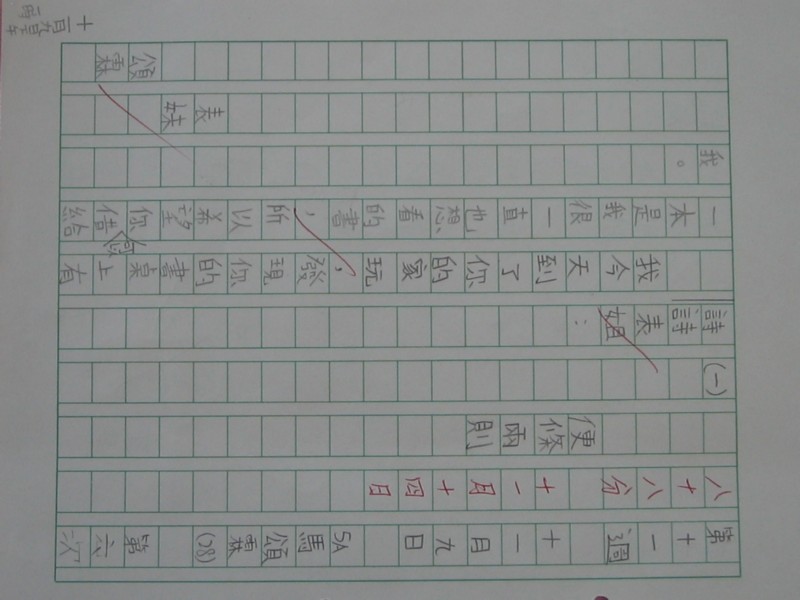 第十一週 十一月九日 5A 馬頌霖(28) 第六次
八十八分 十一月十四日
便條兩則
(一)
詩詩表姐:
我今天到了你的家玩,發現你的書桌上有
一本是我很一直也想看的書,所以希望你借給
我。
表妹
頌霖